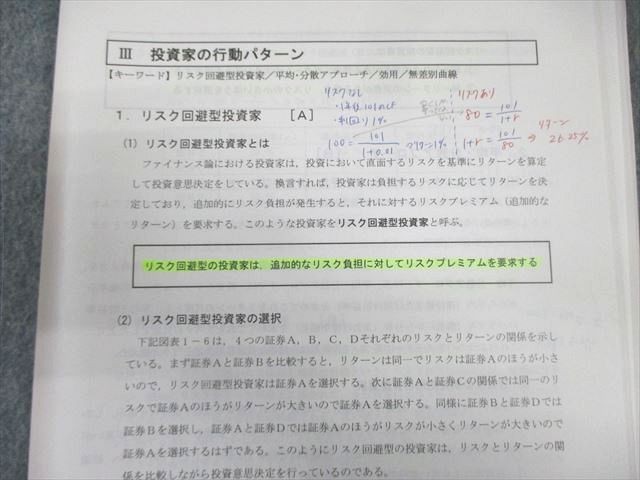 Ⅲ 投資家の行動パターン
【キーワード】リスク回避型投資家／平均・分散アプローチ／効用／無差別曲線
リスクなし
リスクあり
・1年後101のCF
・利回り1%
80 = 101/1+r
リターン
1. リスク回避型投資家 [A]
100 = 101/1+0.01 → リターン1%
1+r = 101/80 → 26.25%
(1) リスク回避型投資家とは
ファイナンス論における投資家は，投資において直面するリスクを基準にリターンを算定
して投資意思決定をしている。換言すれば，投資家は負担するリスクに応じてリターンを決
定しており，追加的にリスク負担が発生すると，それに対するリスクプレミアム（追加的な
リターン）を要求する。このような投資家をリスク回避型投資家と呼ぶ。
リスク回避型の投資家は，追加的なリスク負担に対してリスクプレミアムを要求する
(2) リスク回避型投資家の選択
下記図表1－6は，4つの証券A，B，C，Dそれぞれのリスクとリターンの関係を示し
ている。まず証券Aと証券Bを比較すると，リターンは同一でリスクは証券Aのほうが小さ
いので，リスク回避型投資家は証券Aを選択する。次に証券Aと証券Cの関係では同一のリ
スクで証券Aのほうがリターンが大きいので証券Aを選択する。同様に証券Bと証券Dでは
証券Bを選択し，証券Aと証券Dでは証券Aのほうがリスクが小さくリターンが大きいので
証券Aを選択するはずである。このようにリスク回避型の投資家は，リスクとリターンの関
係を比較しながら投資意思決定を行っているのである。